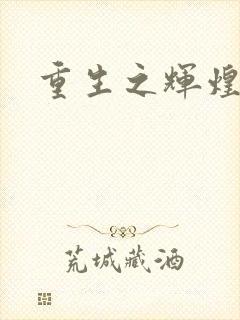 重生之辉煌
荒城藏酒